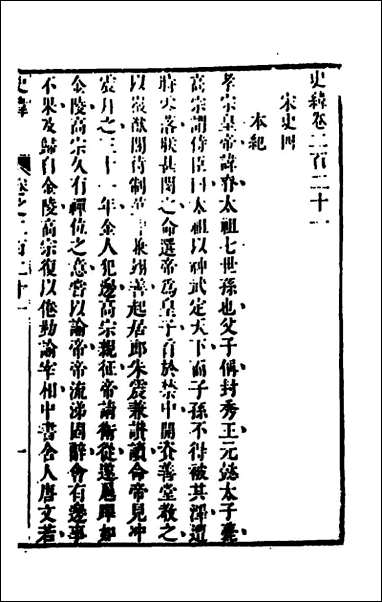 史緯卷二百二十一
宋史四
本紀
孝宗皇帝諱眘太祖七世孫也父子偁封秀王元懿太子薨
高宗謂侍臣曰太祖以神武定天下而子孫不得被其澤遭
時零落朕甚閔之命選帝爲皇子育於禁中開資善堂教之
以徽猷閣待制范冲兼翊善起居郎朱震兼讚讀命帝見冲
震拜之三十一年金人犯邊高宗親征帝請衛從遂扈蹕如
金陵高宗久有禪位之意嘗以諭帝帝流涕固辭會有邊事
不果及歸自金陵高宗復以倦勤諭宰相中書舍人唐文若
史緯 卷之二百二十一 一